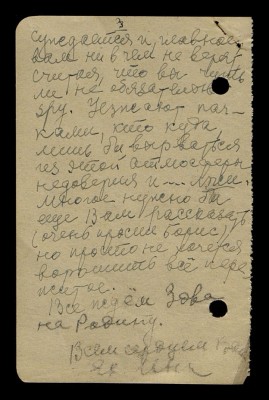 3
суждается и, главное
вам ни в чем не верят
считая, что вы чуть
ли не обязательно
вру. Уезжают пач-
ками, кто куда,
лишь бы вырваться
из этой атмосферы
недоверия и ... лжи.
Многое нужно бы
еще Вам рассказать
(очень просил Борис),
но просто не хочется
ворошить всё пере
житое.
Все ждём Зова
на Родину.
Всем сердцем